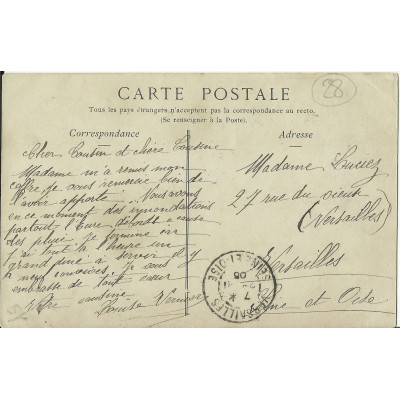 28
CARTE POSTALE
Tous les pays étrangers n'acceptent pas la correspondance au recto.
(Se renseigner à la Poste).
Correspondance
Adresse
Cher Cousin et chère Cousine
Madame m'a remis mon
je vous remercie bien de
l'avoir apporté Nous avons
en ce moment des inondations
partout l'Eure déborde a cause
des pluies Je termine ici
j'ai tout à l'heure un
grand diné a servir il y
a neuf convives. Je vous
embrasse de tout cœur
Votre cousine
Louise
Madame
27 rue du vieux
(Versailles)
Versailles
Seine et Oise
VERSAILLES
SEINE-ET-OISE
7 *